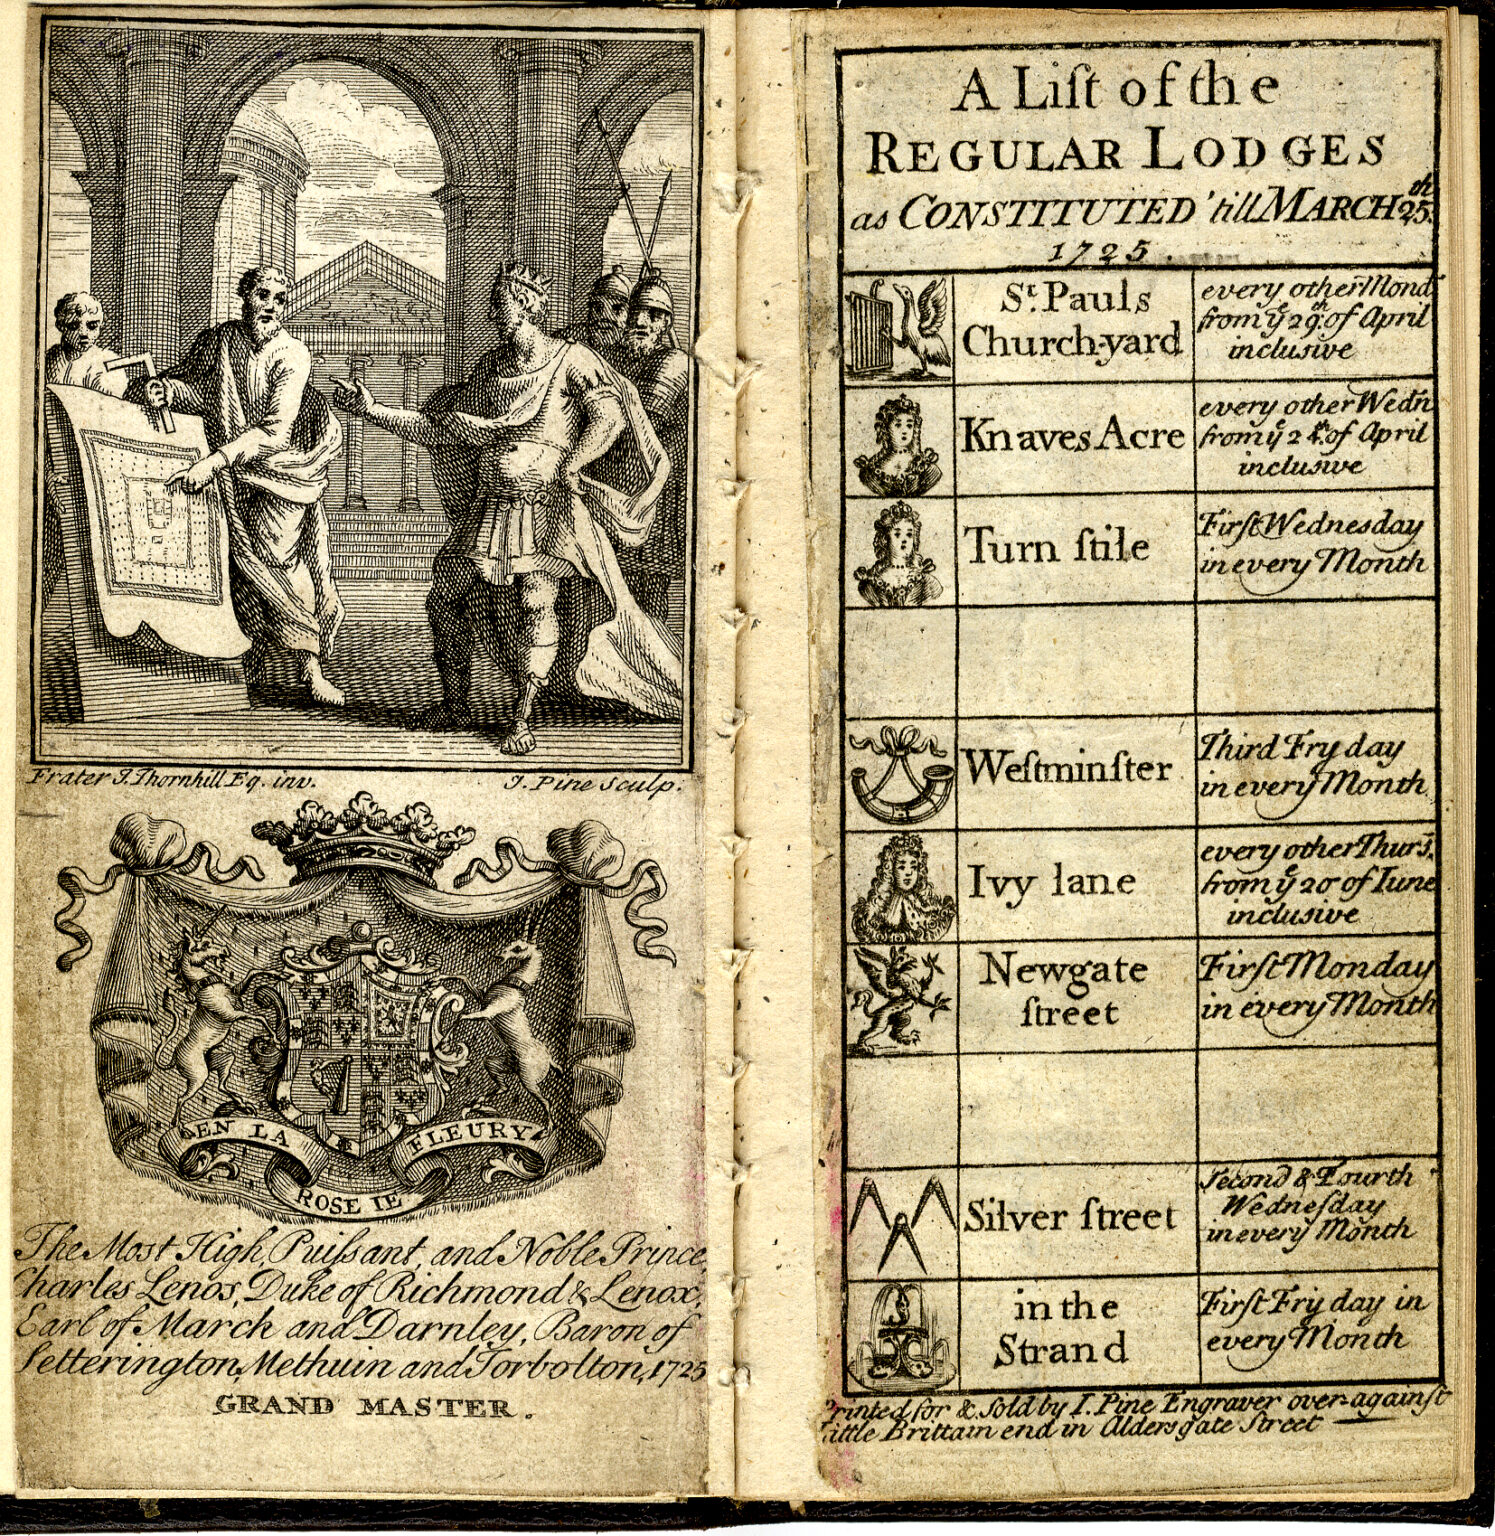 Frater J. Thornhill Eq. inv.
J. Pine sculp.
EN LA
ROSE IE
FLEURY
The Most High, Puiſsant, and Noble Prince,
Charles Lenos, Duke of Richmond & Lenox,
Earl of March and Darnley, Baron of
Setterington, Methuin and Torbolton, 1725
GRAND MASTER.
A Liſt of the
REGULAR LODGES
as CONSTITUTED 'till MARCH 25th.
1725.
St. Pauls
Church-yard
every other Mond
from ye 29th of April
incluſive
Knaves Acre
every other Wedn
from ye 24th of April
incluſive
Turn ſtile
Firſt Wednesday
in every Month
Weſtminſter
Third Fryday
in every Month
Ivy lane
every other Thurs.
from ye 20 of Iune
incluſive
Newgate
ſtreet
Firſt Monday
in every Month
Silver ſtreet
Second & Fourth
Wedneſday
in every Month
in the
Strand
Firſt Fryday in
every Month
Printed for & Sold by I. Pine Engraver over-againſt
Little Brittain end in Aldersgate Street